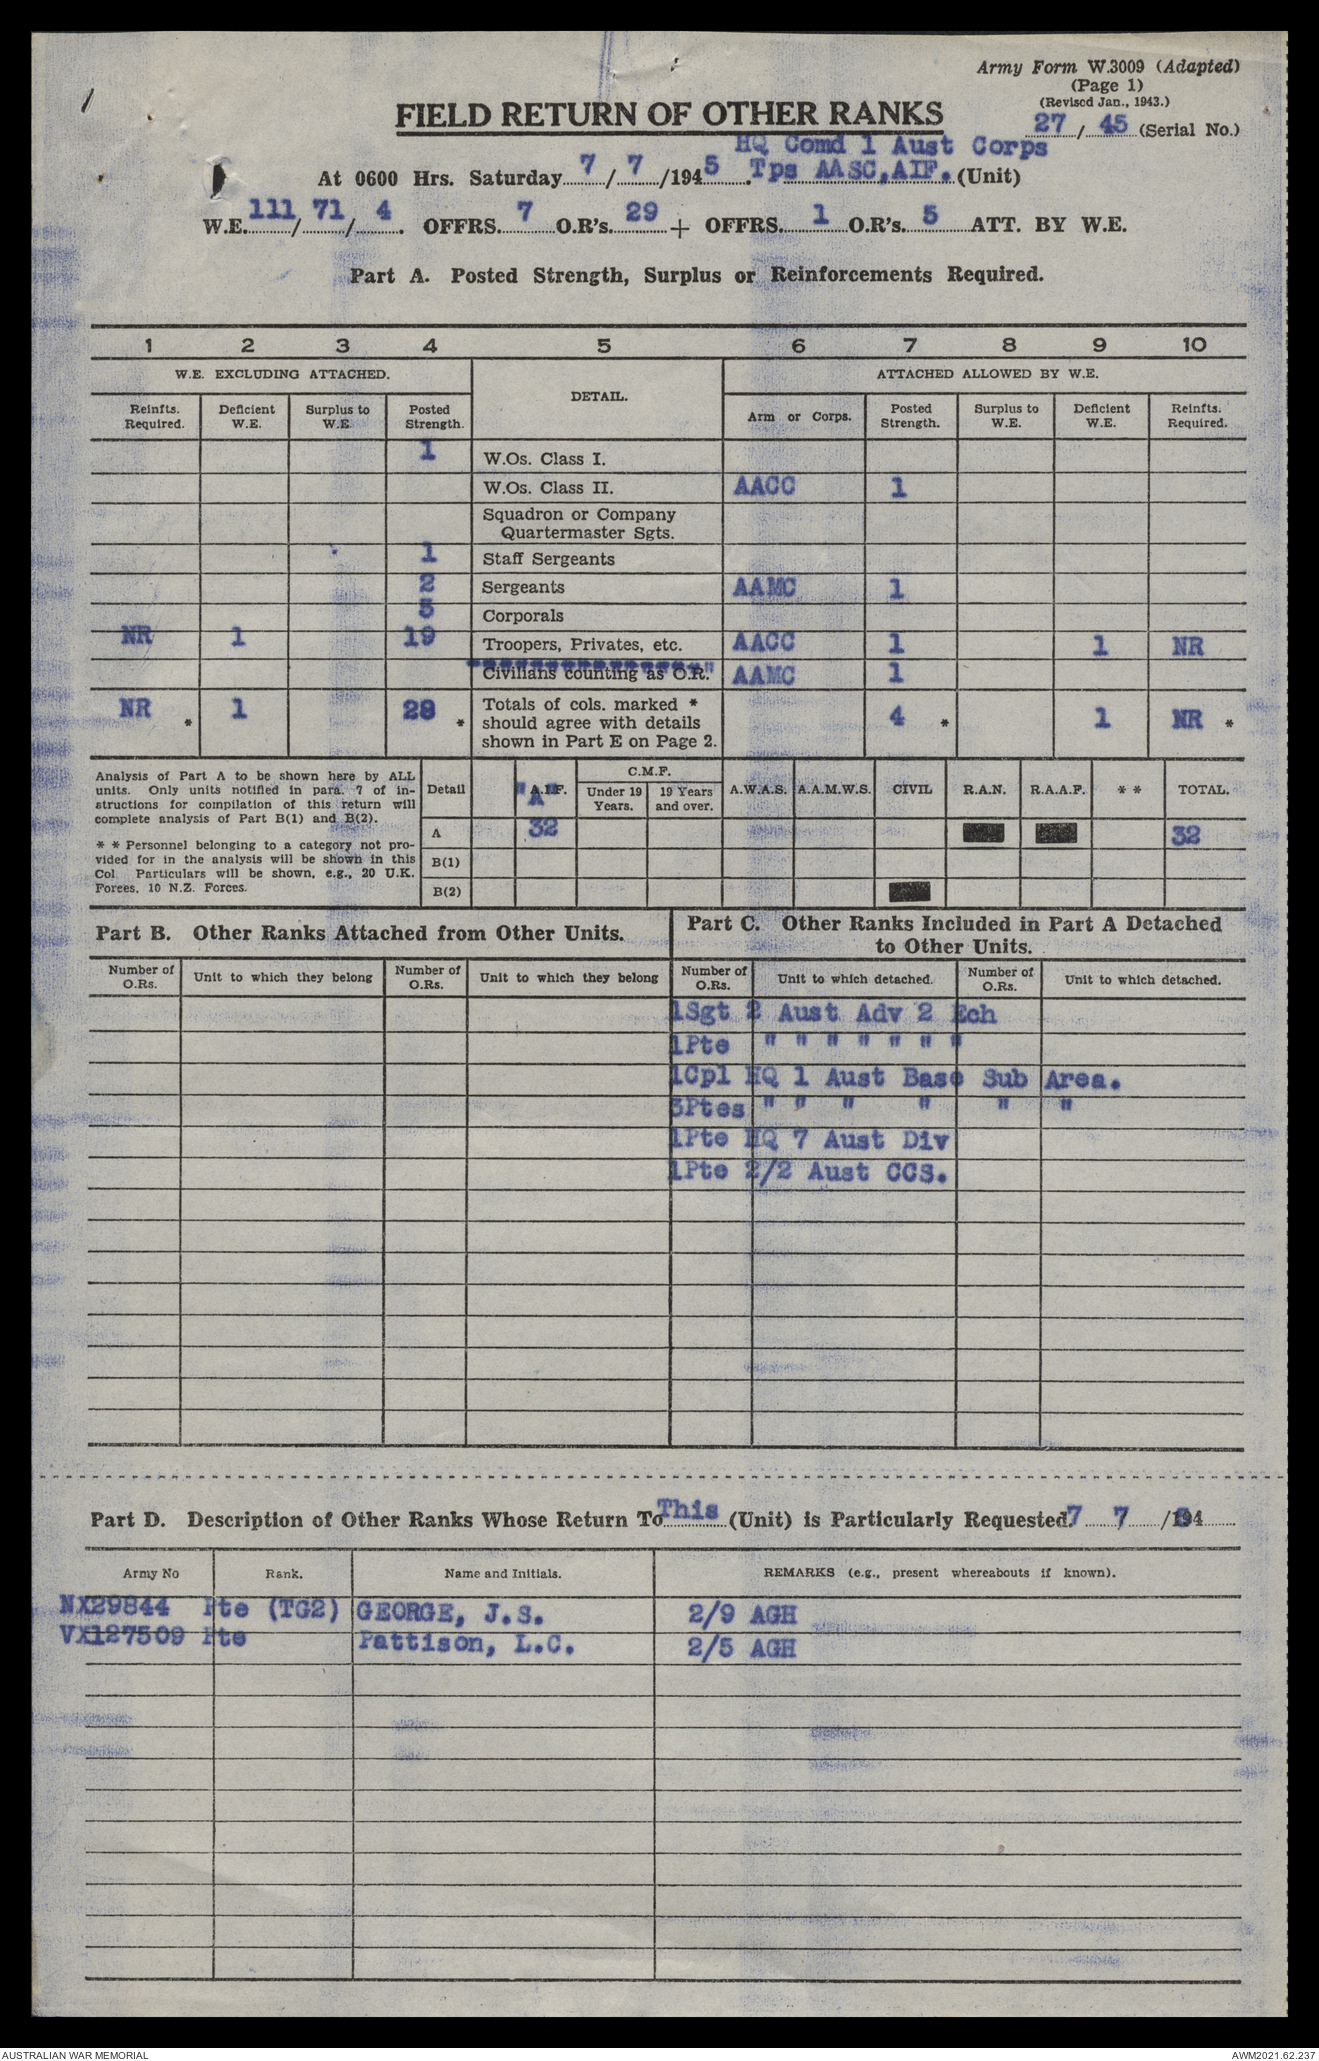 Army Form W.3009 (Adapted)
(Page 1)
(Revised Jan., 1943.)
27 / 45 (Serial No.)
FIELD RETURN OF OTHER RANKS
HQ Comd 1 Aust Corps
At 0600 Hrs. Saturday 7 / 7 /1945 Tps AASC,AIF. (Unit)
W.E. 111 / 71 / 4 . OFFRS. 7 O.R's. 29 + OFFRS. 1 O.R's. 5 ATT. BY W.E.
Part A. Posted Strength, Surplus or Reinforcements Required.
1 2 3 4 5 6 7 8 9 10
W.E. EXCLUDING ATTACHED. DETAIL. ATTACHED ALLOWED BY W.E.
Reinfts. Required. Deficient W.E. Surplus to W.E. Posted Strength. Arm or Corps. Posted Strength. Surplus to W.E. Deficient W.E. Reinfts. Required.
1 W.Os. Class I.
W.Os. Class II. AACC 1
Squadron or Company
Quartermaster Sgts.
1 Staff Sergeants
2 Sergeants AAMC 1
5 Corporals
NR 1 19 Troopers, Privates, etc. AACC 1 1 NR
Civilians counting as O.R." AAMC 1
NR * 1 28 * Totals of cols. marked * should agree with details shown in Part E on Page 2. 4 * 1 NR *
Analysis of Part A to be shown here by ALL
units. Only units notified in para. 7 of in-
structions for compilation of this return will
complete analysis of Part B(1) and B(2).
* * Personnel belonging to a category not pro-
vided for in the analysis will be shown in this
Col Particulars will be shown, e.g., 20 U.K.
Forces, 10 N.Z. Forces.
Detail "A" A.I.F. C.M.F. Under 19 Years. 19 Years and over. A.W.A.S. A.A.M.W.S. CIVIL R.A.N. R.A.A.F. * * TOTAL.
A 32 32
B(1)
B(2)
Part B. Other Ranks Attached from Other Units.
Part C. Other Ranks Included in Part A Detached
to Other Units.
Number of O.Rs. Unit to which they belong Number of O.Rs. Unit to which they belong Number of O.Rs. Unit to which detached. Number of O.Rs. Unit to which detached.
1Sgt 2 Aust Adv 2 Ech
1Pte " " " " " " "
1Cpl HQ 1 Aust Base Sub Area.
3Ptes " " " " " "
1Pte HQ 7 Aust Div
1Pte 2/2 Aust CCS.
Part D. Description of Other Ranks Whose Return To This (Unit) is Particularly Requested. 7 7 /194
Army No Rank. Name and Initials. REMARKS (e.g., present whereabouts if known).
NX29844 Pte (TG2) GEORGE, J.S. 2/9 AGH
VX127509 Pte Pattison, L.C. 2/5 AGH
AUSTRALIAN WAR MEMORIAL
AWM2021.62.237